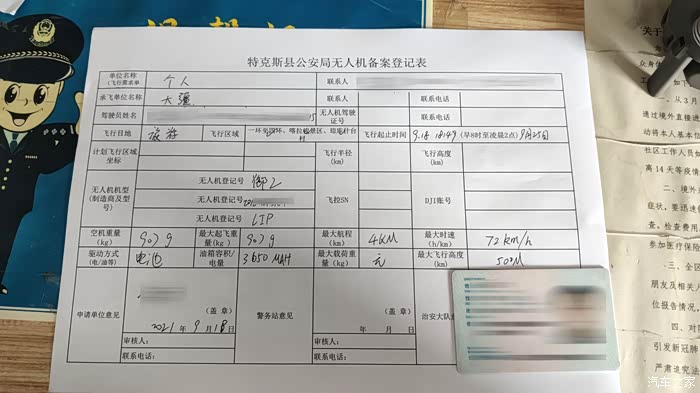 特克斯县公安局无人机备案登记表
单位名称 个人 联系人
(飞行需求单
承飞单位名称 大疆 联系电话 联系电话
驾驶员姓名 15 无人机驾驶证号
飞行目地 旅游 飞行区域 一环至四环、喀拉峻景区、琼库什台村 飞行起止时间 9.18 18:49 (早8时至凌晨2点) 9月25日
计划飞行区域坐标 飞行半径(km) 飞行高度(km)
无人机机型(制造商及型号) 无人机登记号 御2 飞控SN DJI账号
无人机登记号
无人机登记号 LIP
空机重量(kg) 907g 最大起飞重量(kg) 907g 最大航程(km) 4KM 最大时速(h/km) 72km/h
驱动方式(电/油等) 电池 油箱容积/电量 3850MAH 最大载荷重量(kg) 无 最大飞行高度(km) 500M
申请单位意见 (盖 章) 2021年9月18日 警务站意见 (盖 章) 年 月 日 治安大队意
审核人: 审核人:
联系电话: 联系电话:
"关于
众身体
一、从3月
通过境外直接进
动将本人基本位
社区工作人员如
离14天等疫情
二、境外
症状。要迅速
查。检查费用
参加医疗保险
三、全区
朋友及相关人
位报告情况。
四、对
引发新冠肺
严肃追究法
汽车之家